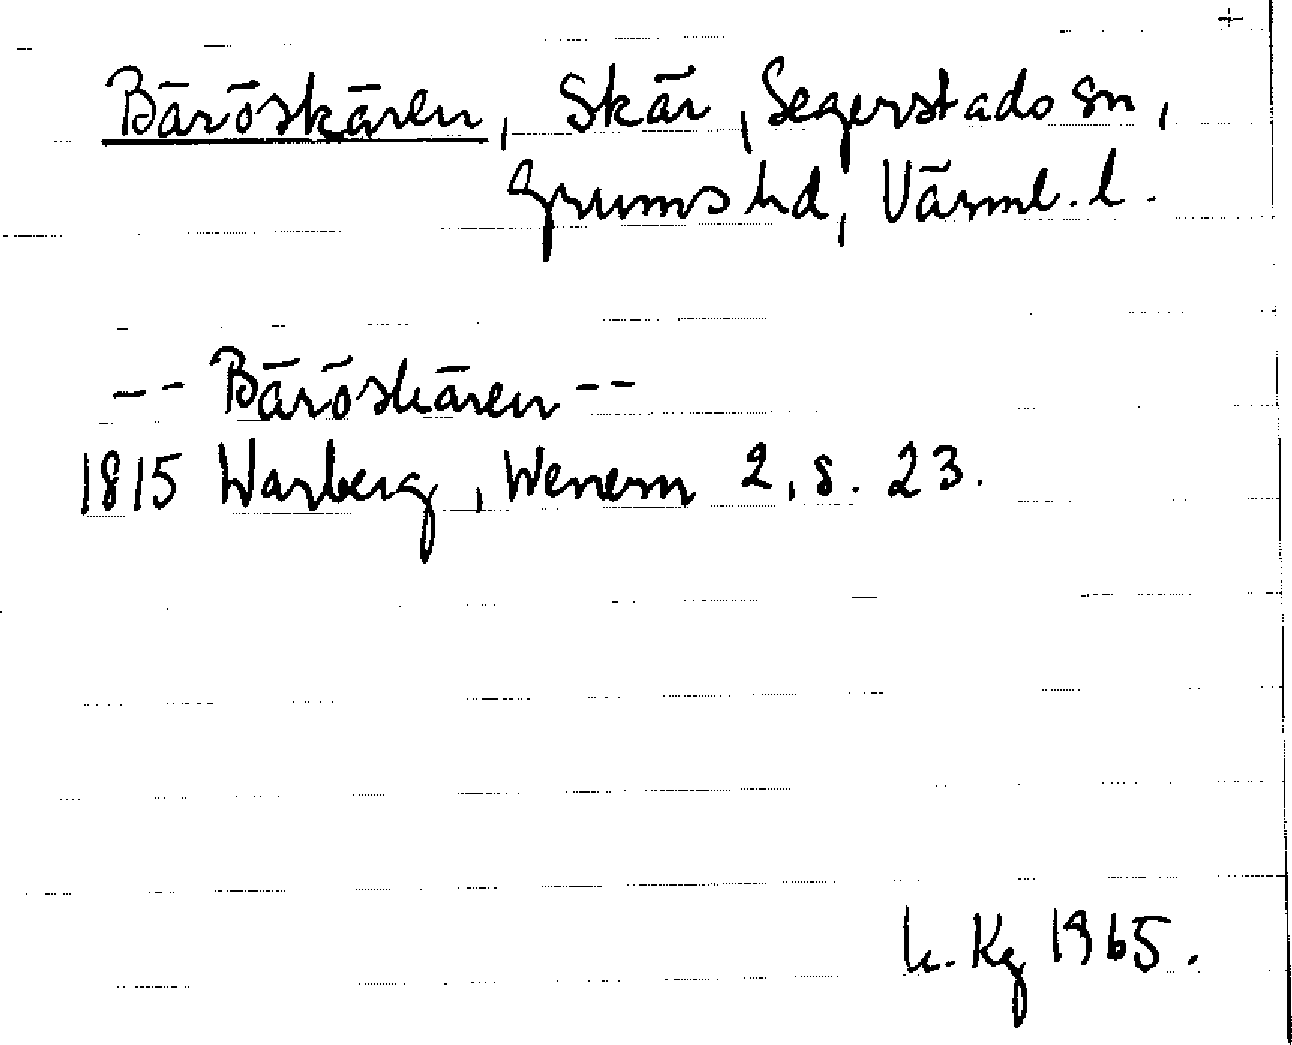 +
Bäröskären, Skär, Segerstads sn,
Grums hd, Värml. l.
-- Bäröskären --
1815 Warberg, Wenern 2, s. 23.
Kg 1965.